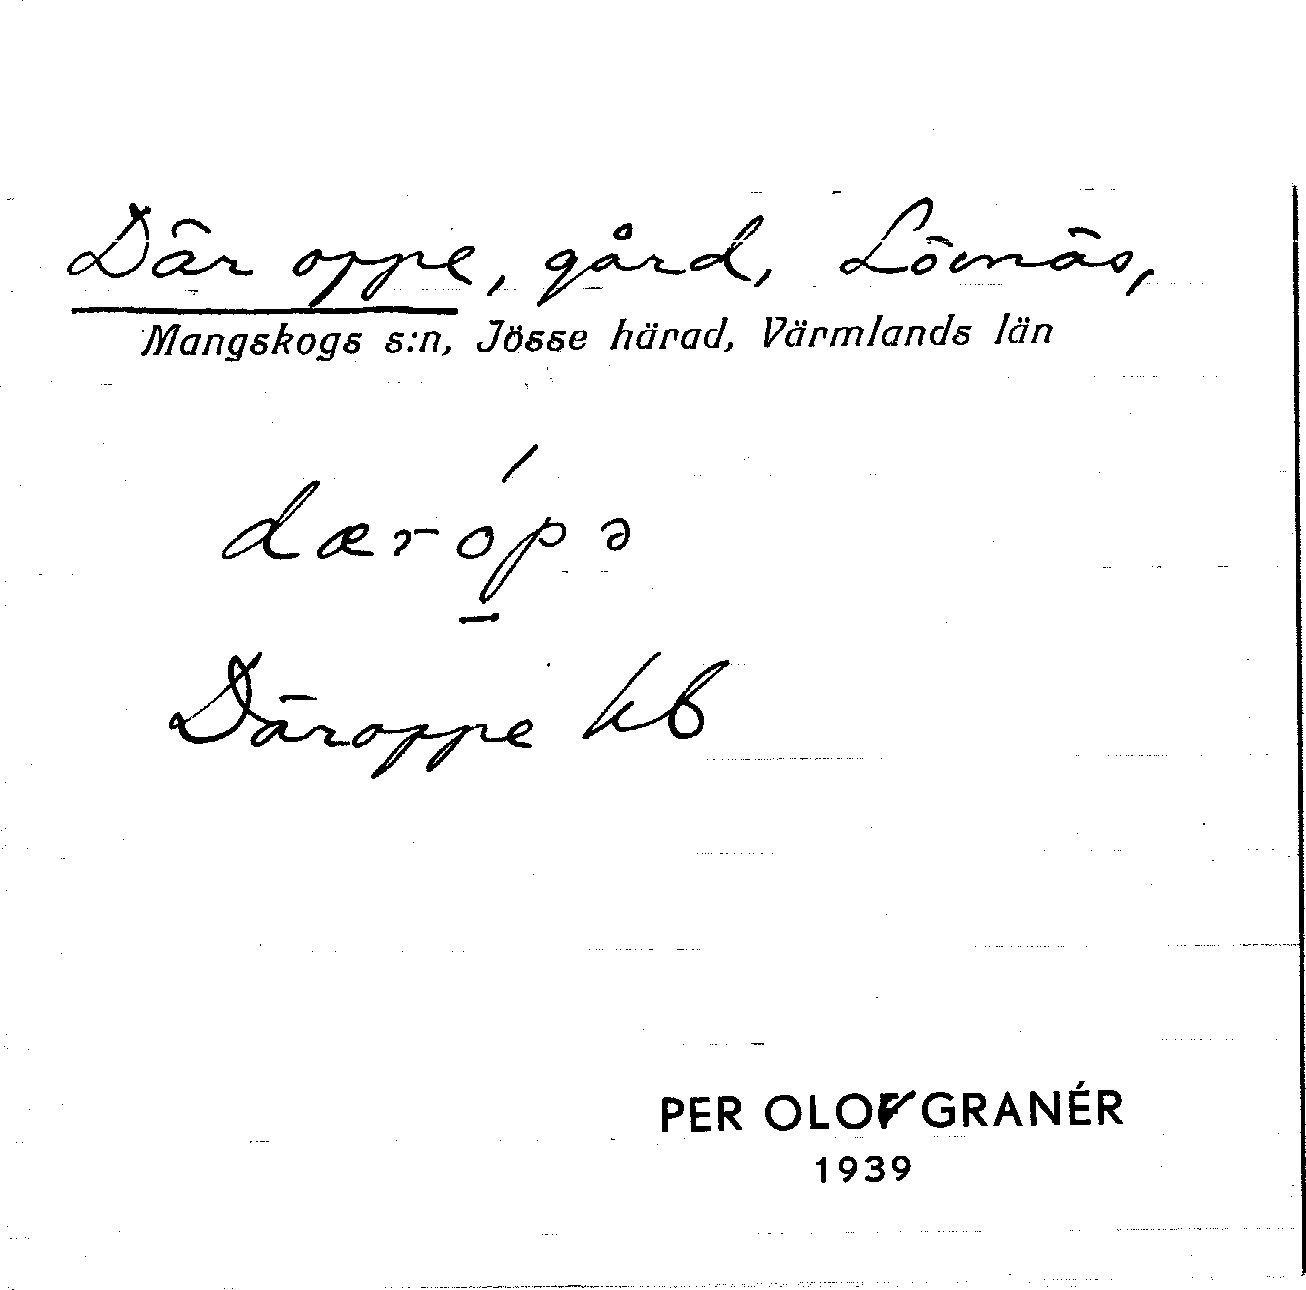 Där oppe, gård, Lövnäs,
Mangskogs s:n, Jösse härad, Värmlands län
dærópə
Däroppe kb
PER OLOF GRANÉR
1939